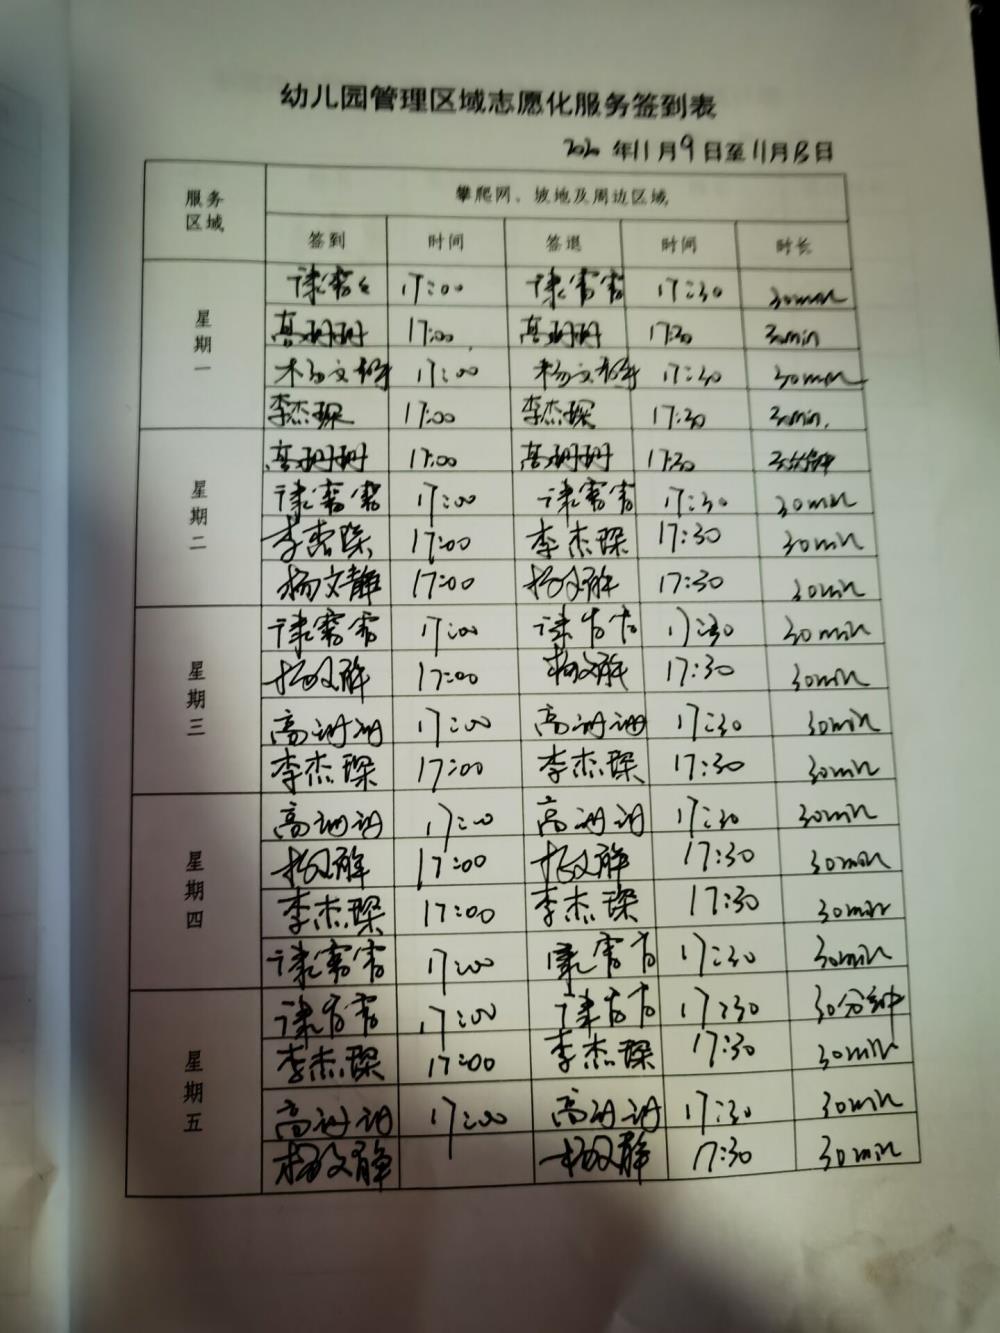 幼儿园管理区域志愿化服务签到表
2020 年 11 月 9 日至 11 月 13 日
服务区域 攀爬网、坡地及周边区域
签到 时间 签退 时间 时长
星期一
17:00 17:30 30min
高珊珊 17:00 高珊珊 17:30 30min
杨文静 17:00 杨文静 17:30 30min
李杰琛 17:00 李杰琛 17:30 30min.
星期二
高珊珊 17:00 高珊珊 17:30 30分钟
17:00 17:30 30min
李杰琛 17:00 李杰琛 17:30 30min
杨文静 17:00 杨文静 17:30 30min
星期三
17:00 17:30 30min
杨文静 17:00 杨文静 17:30 30min
高珊珊 17:00 高珊珊 17:30 30min
李杰琛 17:00 李杰琛 17:30 30min
星期四
高珊珊 17:00 高珊珊 17:30 30min
杨文静 17:00 杨文静 17:30 30min
李杰琛 17:00 李杰琛 17:30 30min
17:00 17:30 30min
星期五
17:00 17:30 30分钟
李杰琛 17:00 李杰琛 17:30 30min
高珊珊 17:00 高珊珊 17:30 30min
杨文静 杨文静 17:30 30min